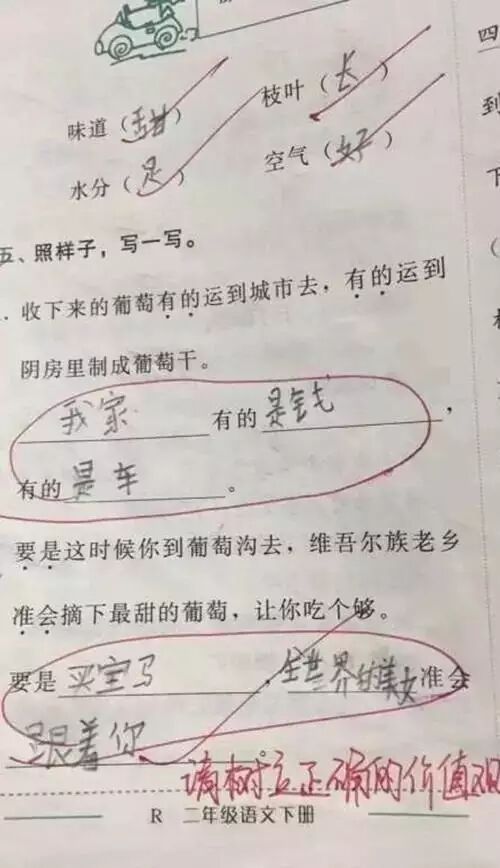 四
味道（甜） 枝叶（长）
到
水分（足） 空气（好）
下
五、照样子，写一写。
收下来的葡萄有的运到城市去，有的运到
阴房里制成葡萄干。
我家有的是钱，
有的是车。
要是这时候你到葡萄沟去，维吾尔族老乡
准会摘下最甜的葡萄，让你吃个够。
要是买宝马，全世界的美女准会
跟着你。
请树立正确的价值观
R 二年级语文下册